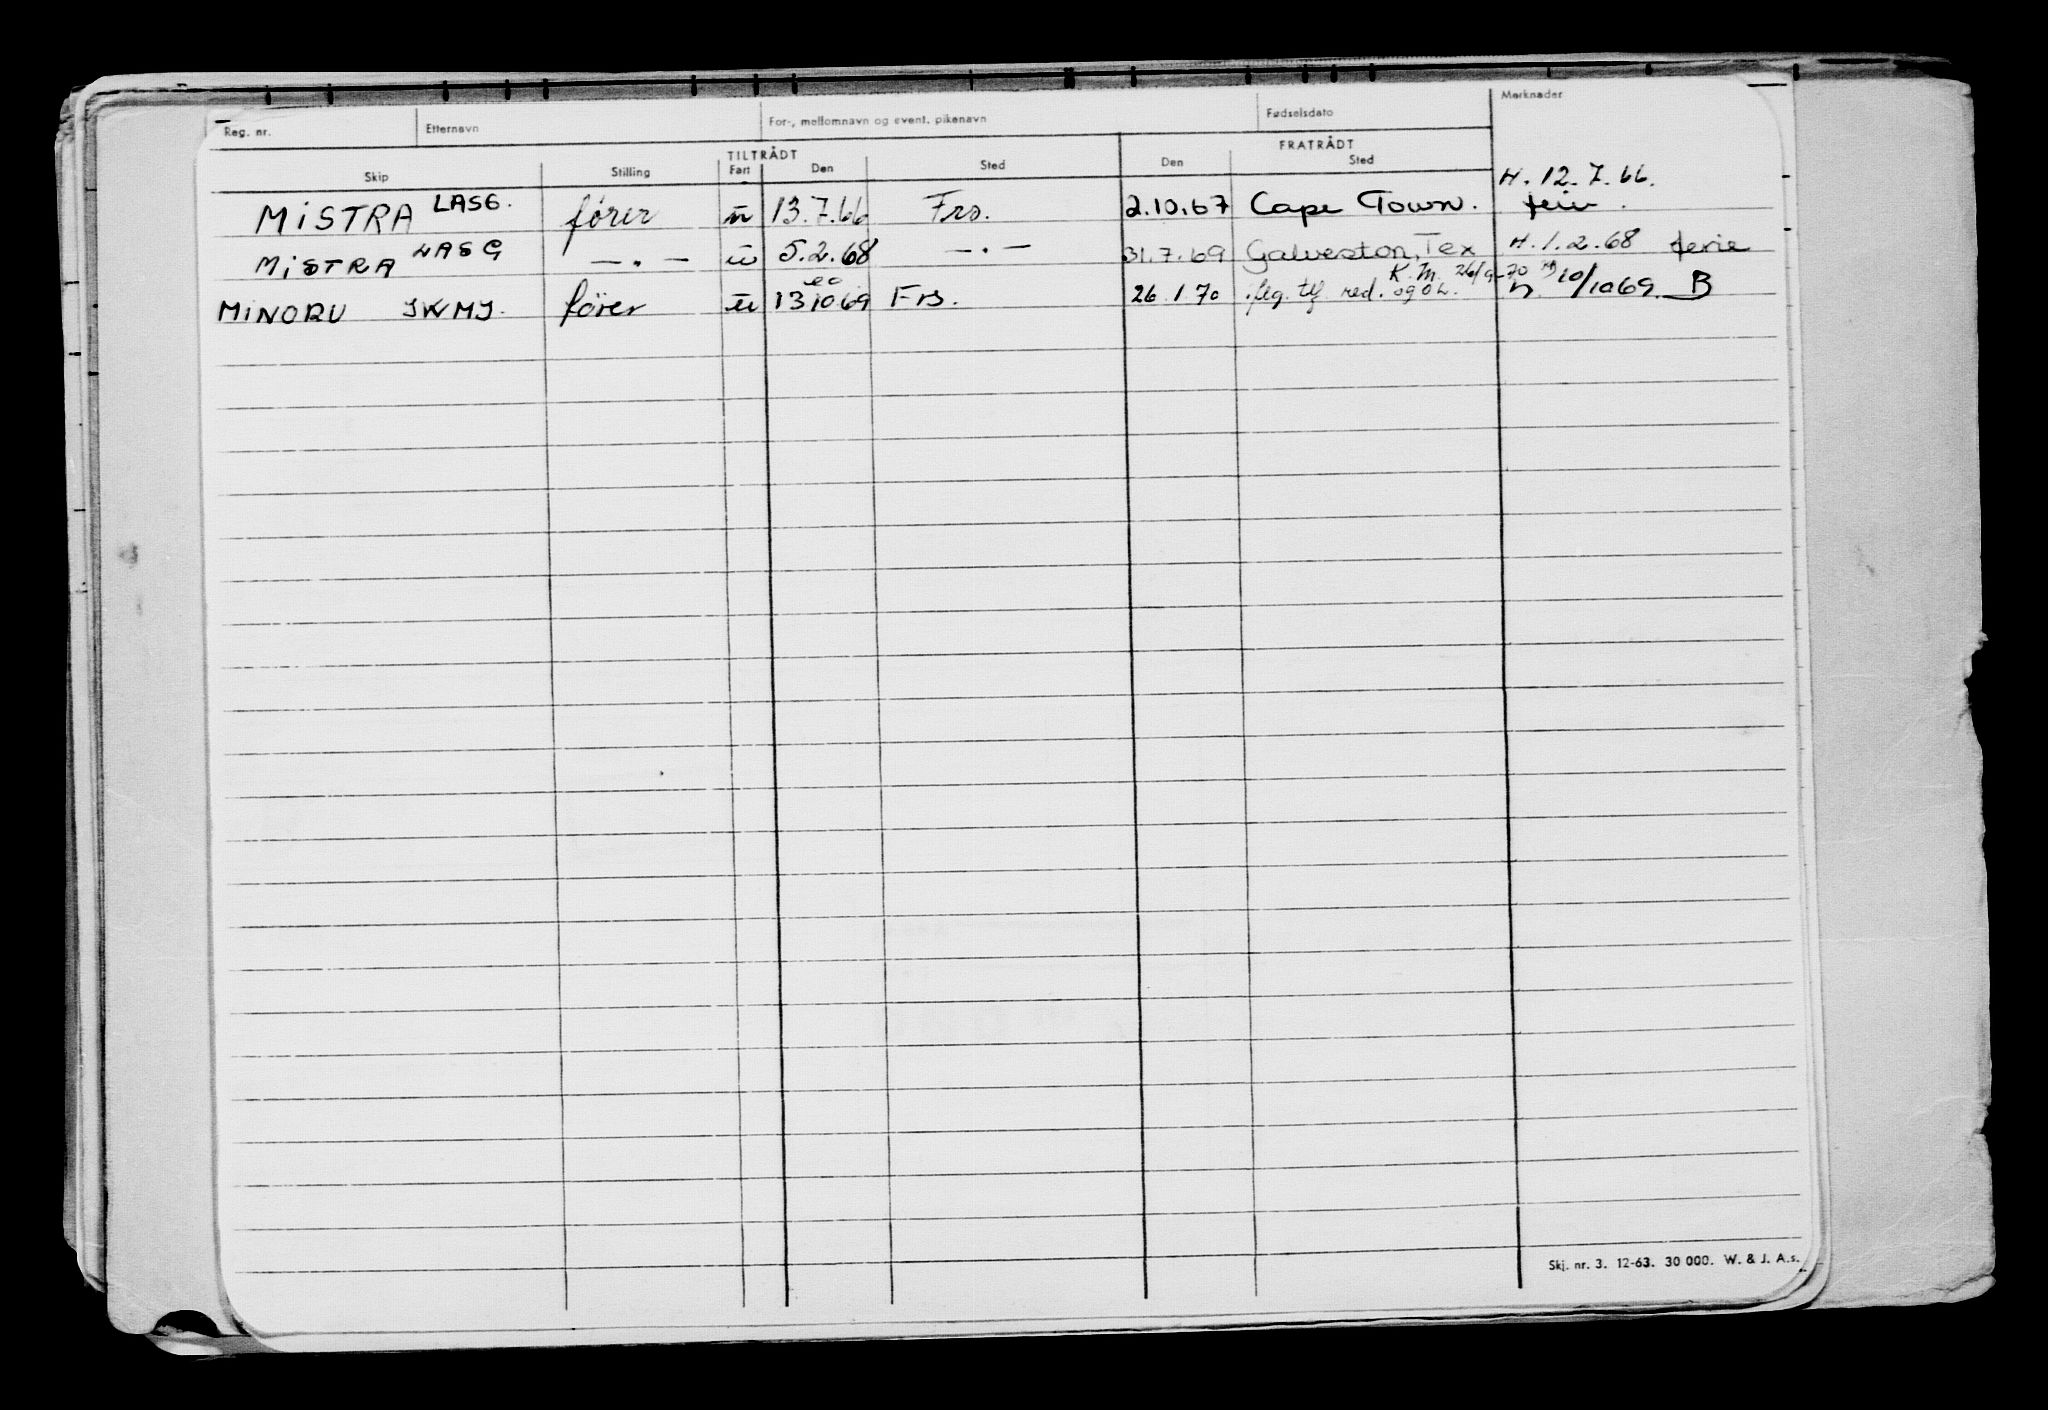 Reg. nr. Etternavn For-, mellomnavn og event. pikenavn Fødselsdato Merknader
TILTRÅDT FRATRÅDT
Skip Stilling Fart Den Sted Den Sted
H. 12.7.66.
MiSTRA LASG. fører u 13.7.66 Frs. 2.10.67 Cape Town. ferie.
MiSTRA LASG —.— u 5.2.68 —.— 31.7.69 Galveston, Tex H.1.2.68 ferie
K.M. 26/9-70
MiNORU JWMJ. fører u 13 10 69 Frs. 26.1.70 flg. tlf red. og 10/10 69. B
Skj. nr. 3. 12-63. 30 000. W. & J. A.s.